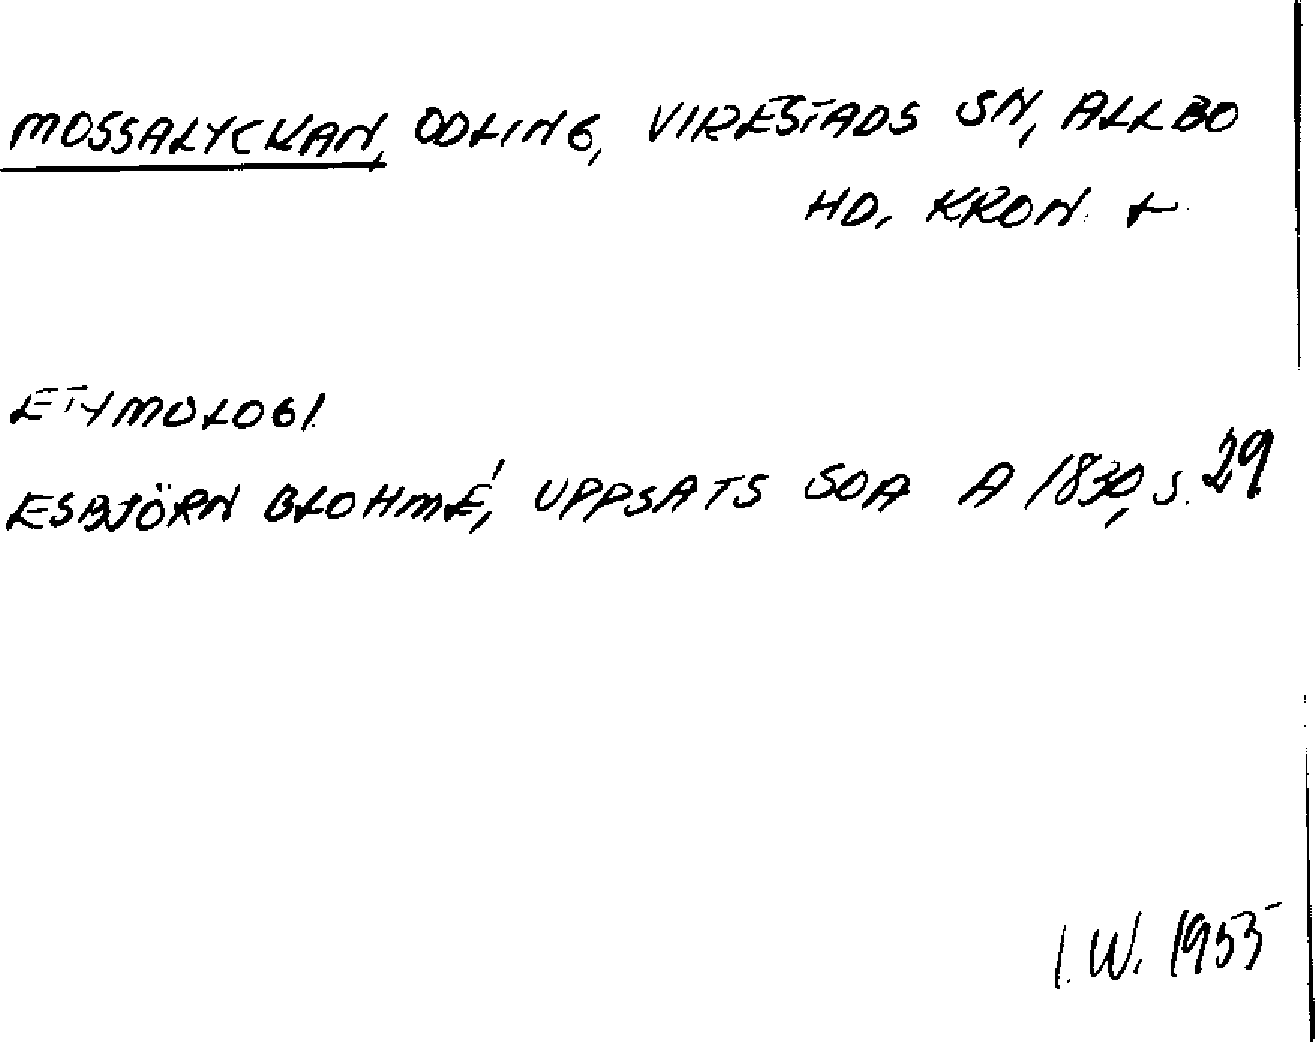 MOSSALYCKAN, ODLING, VIRESTADS SN, ALLBO
HD, KRON. L
ETYMOLOGI.
ESBJÖRN BLOHMÉ, UPPSATS SOA A 1830, S. 29
I.W. 1955